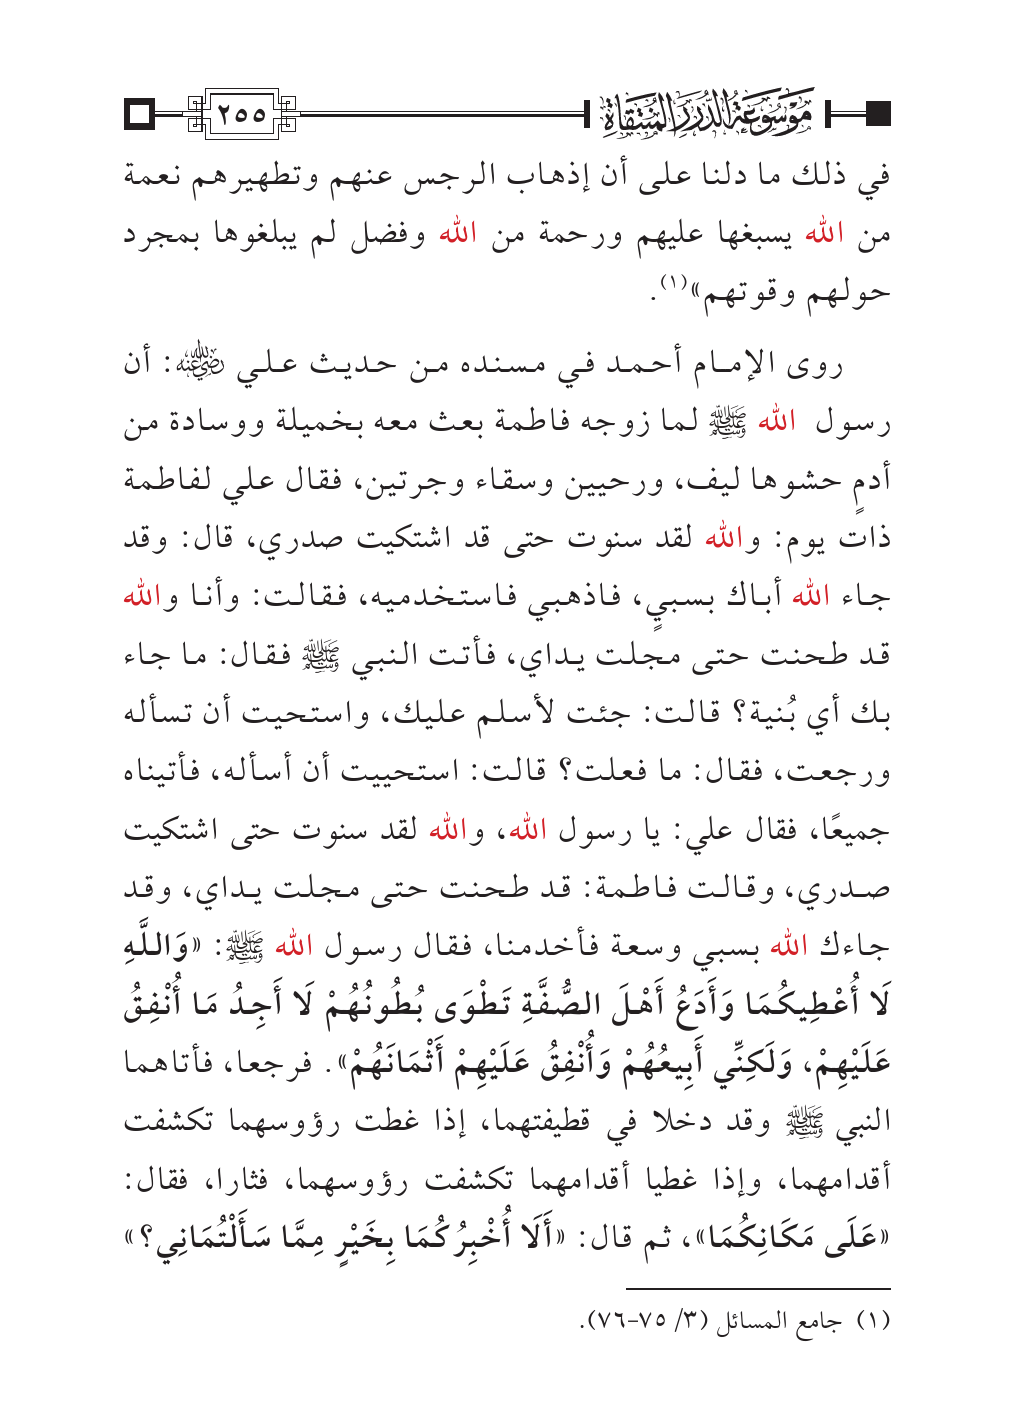 مَوْسُوعَةُ الدُّرَرِ المُنْتَقَاةِ
٢٥٥
في ذلك ما دلنا على أن إذهاب الرجس عنهم وتطهيرهم نعمة
من الله يسبغها عليهم ورحمة من الله وفضل لم يبلغوها بمجرد
حولهم وقوتهم»(١).
روى الإمام أحمد في مسنده من حديث علي رضي الله عنه: أن
رسول الله ﷺ لما زوجه فاطمة بعث معه بخميلة ووسادة من
أدمٍ حشوها ليف، ورحيين وسقاء وجرتين، فقال علي لفاطمة
ذات يوم: والله لقد سنوت حتى قد اشتكيت صدري، قال: وقد
جاء الله أباك بسبيٍ، فاذهبي فاستخدميه، فقالت: وأنا والله
قد طحنت حتى مجلت يداي، فأتت النبي ﷺ فقال: ما جاء
بك أي بُنية؟ قالت: جئت لأسلم عليك، واستحيت أن تسأله
ورجعت، فقال: ما فعلت؟ قالت: استحييت أن أسأله، فأتيناه
جميعًا، فقال علي: يا رسول الله، والله لقد سنوت حتى اشتكيت
صدري، وقالت فاطمة: قد طحنت حتى مجلت يداي، وقد
جاءك الله بسبي وسعة فأخدمنا، فقال رسول الله ﷺ: «وَاللَّهِ
لَا أُعْطِيكُمَا وَأَدَعُ أَهْلَ الصُّفَّةِ تَطْوَى بُطُونُهُمْ لَا أَجِدُ مَا أُنْفِقُ
عَلَيْهِمْ، وَلَكِنِّي أَبِيعُهُمْ وَأُنْفِقُ عَلَيْهِمْ أَثْمَانَهُمْ». فرجعا، فأتاهما
النبي ﷺ وقد دخلا في قطيفتهما، إذا غطت رؤوسهما تكشفت
أقدامهما، وإذا غطيا أقدامهما تكشفت رؤوسهما، فثارا، فقال:
«عَلَى مَكَانِكُمَا»، ثم قال: «أَلَا أُخْبِرُكُمَا بِخَيْرٍ مِمَّا سَأَلْتُمَانِي؟»
(١) جامع المسائل (٣/ ٧٥-٧٦).